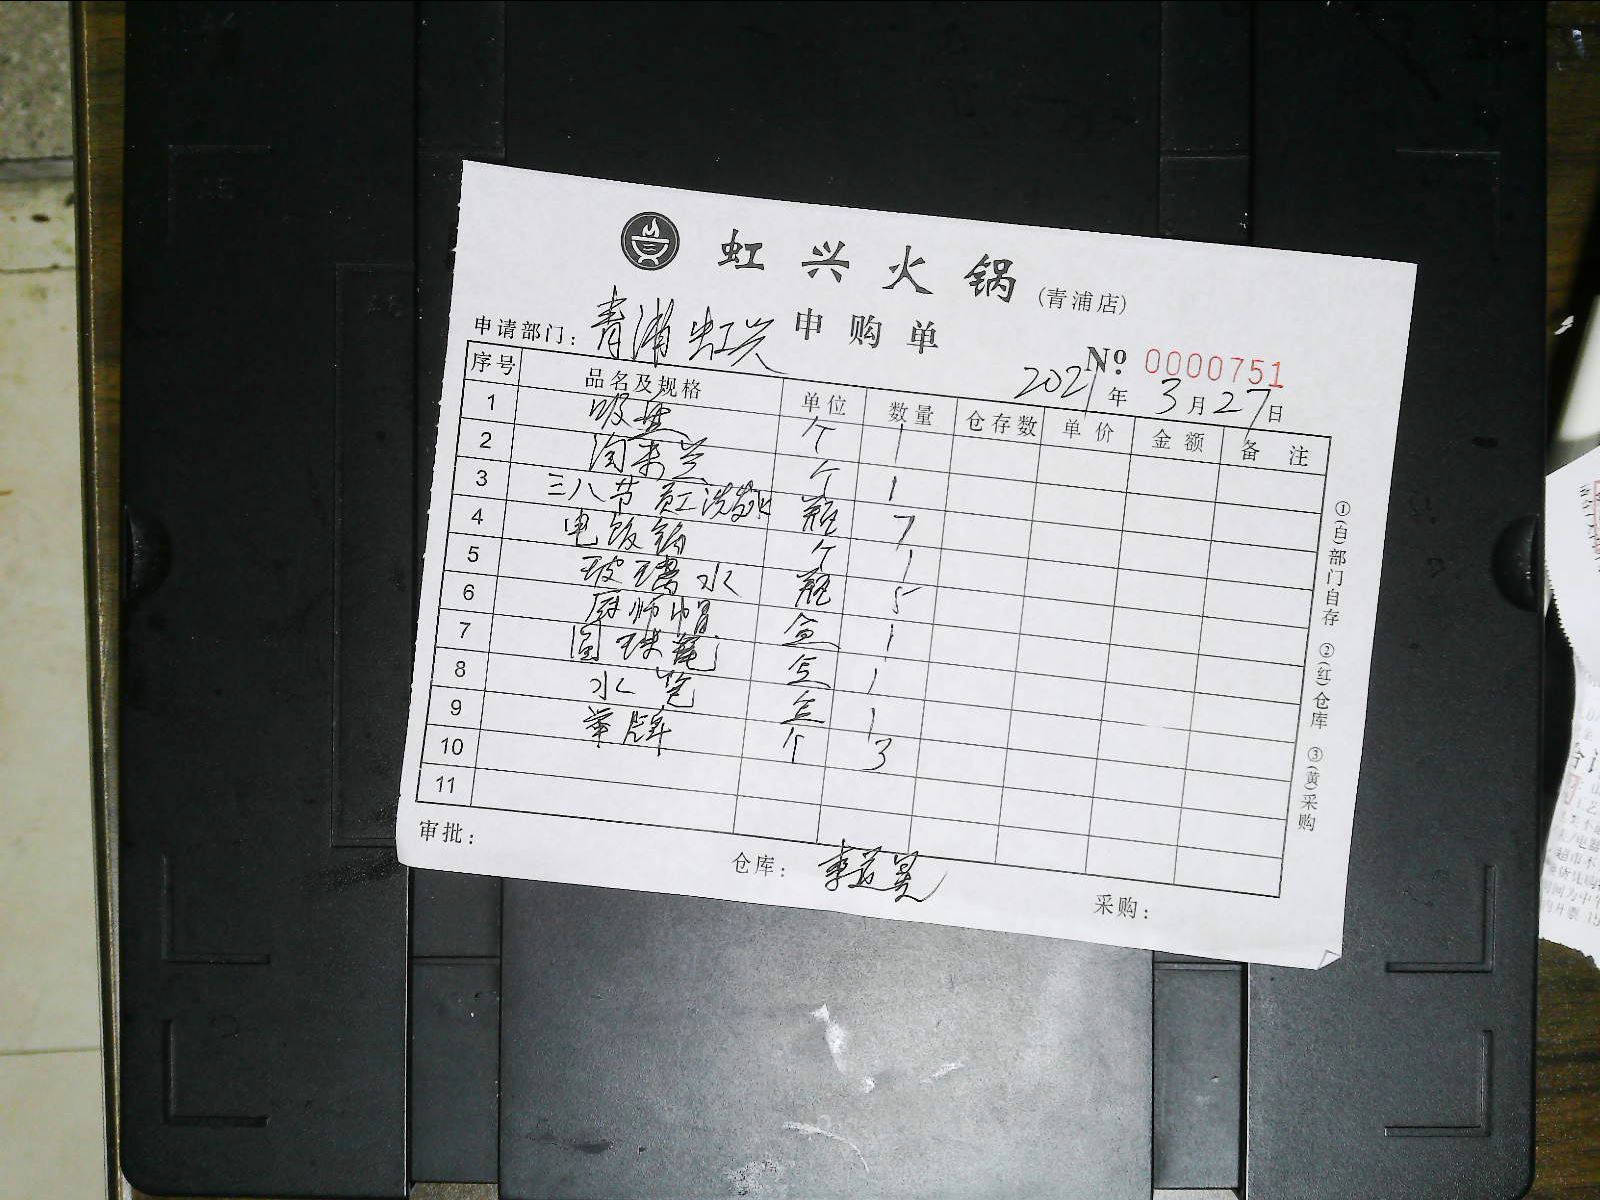 虹兴火锅(青浦店)
申购单
申请部门: 青浦虹兴
Nº 0000751
2021年3月27日
序号 品名及规格 单位 数量 仓存数 单价 金额 备注
1 吸盘 个 1
2 淘米兰 个 1
3 三八节员工洗发水 瓶 7
4 电饭锅 个 1
5 玻璃水 瓶 5
6 厨师帽 盒 1
7 圆珠笔 盒 1
8 水笔 盒 1
9 举牌 个 3
10
11
审批: 仓库: 采购:
①(白)部门自存 ②(红)仓库 ③(黄)采购